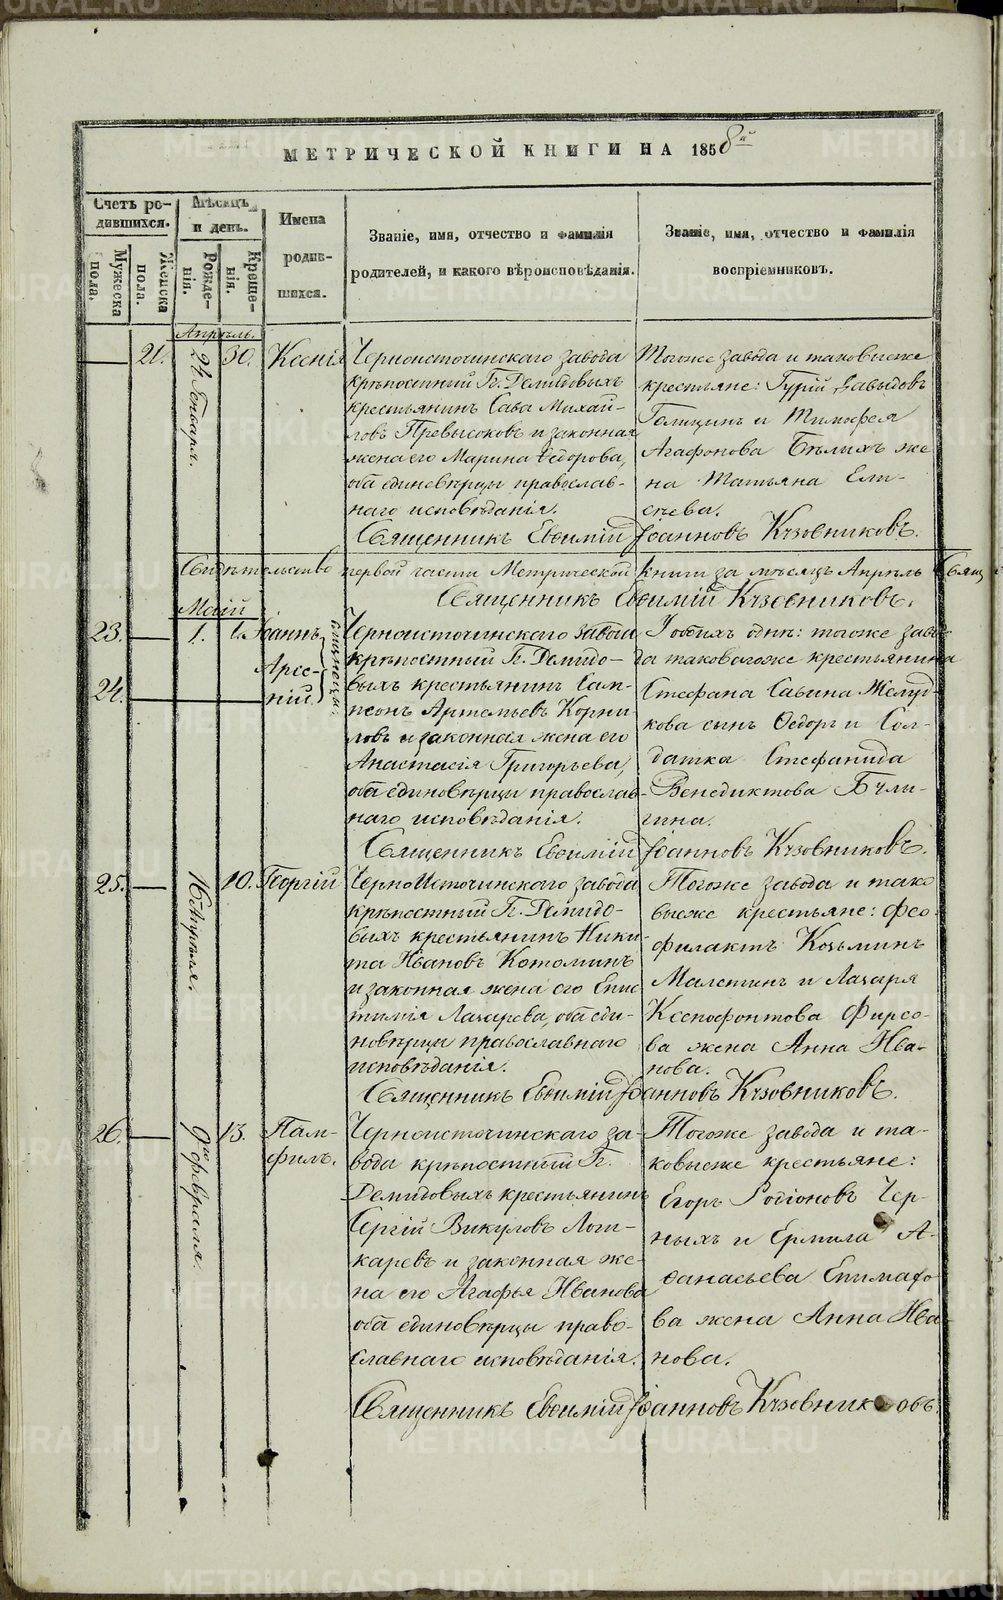 МЕТРИЧЕСКОЙ КНИГИ НА 1858й
Счетъ ро-
дившихся.
Мужеска
пола.
Женска
пола.
Мѣсяцъ
и день.
Рожде-
нія.
Креще-
нія.
Имена
родив-
шихся.
Званіе, имя, отчество и фамилія
родителей, и какого вѣроисповѣданія.
Званіе, имя, отчество и фамилія
воспріемниковъ.
Апрѣль.
21.
24 Генваря.
30.
Ксенія
Черноисточинскаго завода
крѣпостный Г. Демидовыхъ
крестьянинъ Сава Михай-
ловъ Превысоковъ и законная
жена его Марина Ѳедорова,
оба единовѣрцы православ-
наго исповѣданія.
Тогоже завода и таковыеже
крестьяне: Гурій Давыдовъ
Голицынъ и Тимофея
Агафонова Бѣлыхъ же
на Татьяна Ели-
сѣева.
Священникъ Евѳимій Іоанновъ Кузовниковъ.
Свидѣтельство первой части Метрической книги за мѣсяцъ Апрѣль Свящ
Священникъ Евѳимій Кузовниковъ.
Маій
23.
24.
1.
1.
Іоаннъ
Арсе-
ній.
близнецы.
Черноисточинскаго завода
крѣпостный Г. Демидо-
выхъ крестьянинъ Сам-
псонъ Артемьевъ Корни-
ловъ и законная жена его
Анастасія Григорьева,
оба единовѣрцы православ-
наго исповѣданія.
У обоихъ одни: тогоже заво-
да таковагоже крестьянина
Стефана Савина Желуд-
кова сынъ Ѳедоръ и Сол-
датка Стефанида
Венедиктова Були-
гина.
Священникъ Евѳимій Іоанновъ Кузовниковъ.
25.
16 Апрѣля.
10.
Георгій
Черноисточинскаго завода
крѣпостный Г. Демидо-
выхъ крестьянинъ Ники-
та Ивановъ Котоминъ
и законная жена его Епис-
тимія Лазарева, оба еди-
новѣрцы православнаго
исповѣданія.
Тогоже завода и тако
выеже крестьяне: Ѳео-
филактъ Козьминъ
Малетинъ и Лазаря
Ксенофонтова Фирсо-
ва жена Анна Ива-
нова.
Священникъ Евѳимій Іоанновъ Кузовниковъ.
26.
9го февраля.
13.
Пам-
филъ.
Черноисточинскаго за-
вода крѣпостный Г.
Демидовыхъ крестьянинъ
Сергій Викуловъ Лош-
каревъ и законная же-
на его Агафья Иванова
оба единовѣрцы право-
славнаго исповѣданія.
Тогоже завода и та-
ковыеже крестьяне:
Егоръ Родіоновъ Чер-
ныхъ и Ермила А-
ѳанасьева Епимахо
ва жена Анна Ива-
нова.
Священникъ Евѳимій Іоанновъ Кузовниковъ.
METRIKI.GASO-URAL.RU